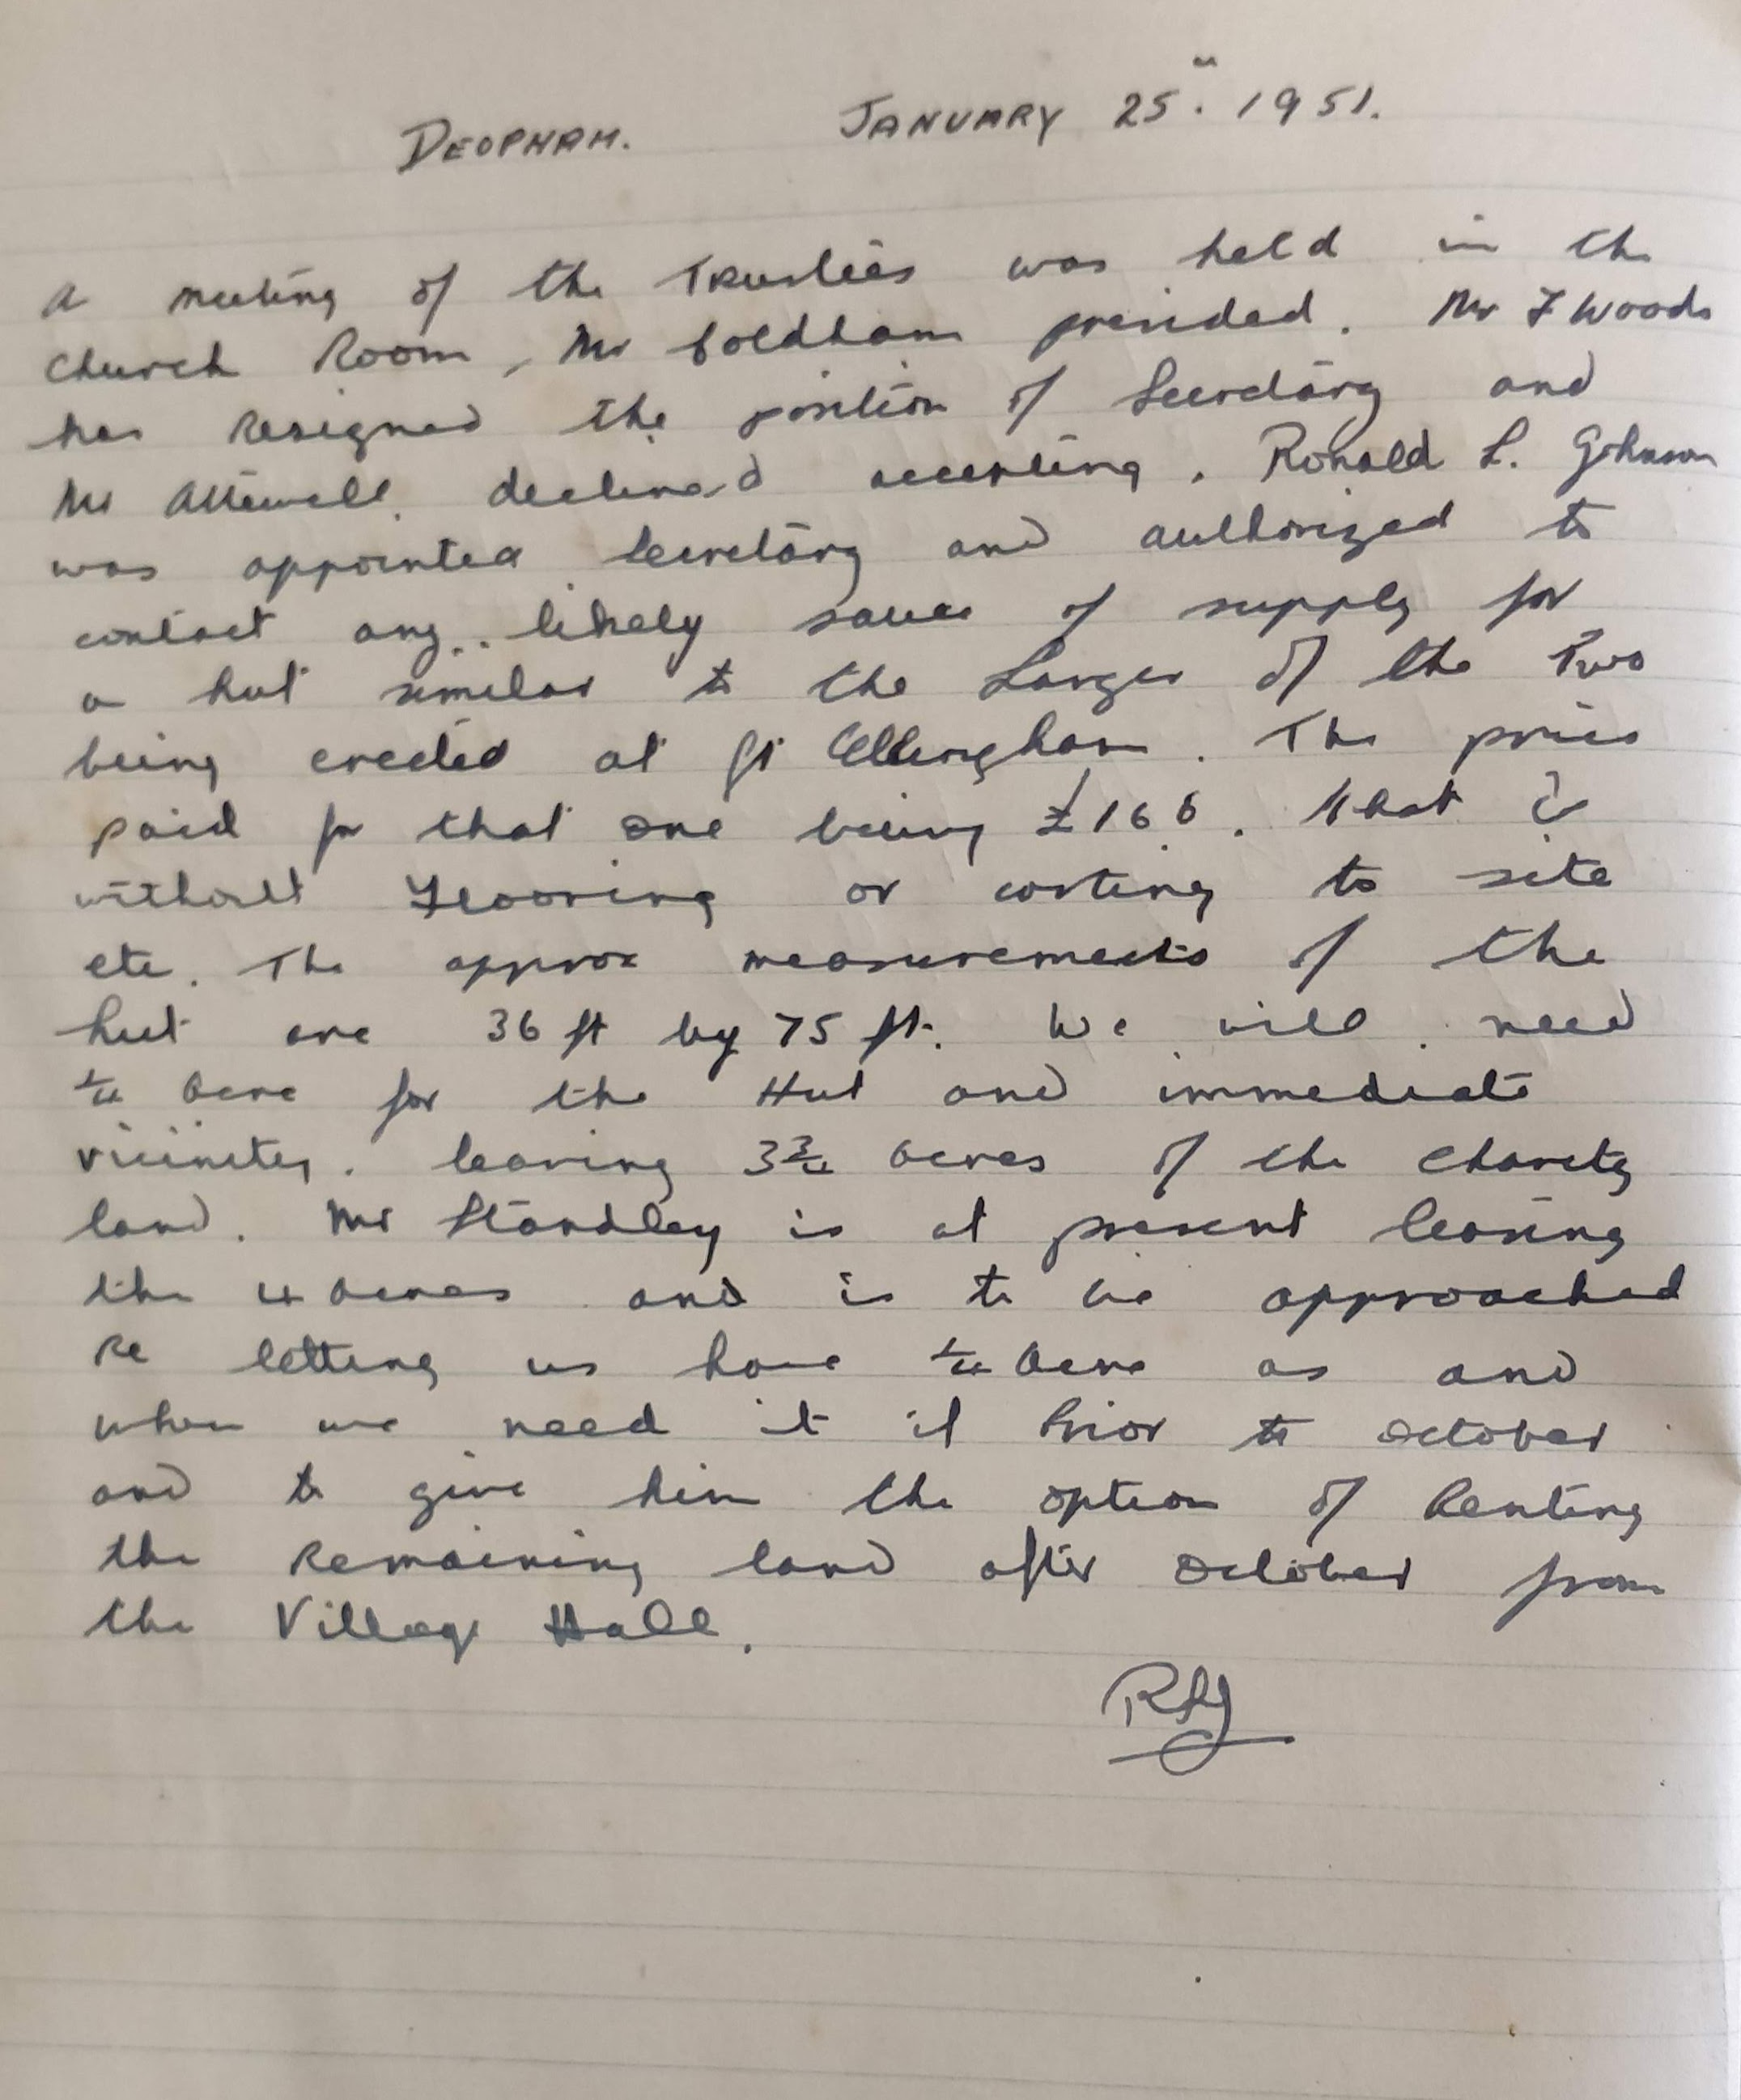 DEOPHAM. JANUARY 25th. 1951.
A meeting of the Trustees was held in the
Church Room, Mr Coldham presided. Mr F Woods
has Resigned the position of Secretary and
Mr Attewell declined accepting. Ronald L. Johnson
was appointed Secretary and authorized to
contact any likely source of supply for
a hut similar to the Larger of the Two
being erected at Gt Ellingham. The price
paid for that one being £166. that is
without Flooring or carting to site
etc. The approx measurements of the
hut are 36 ft by 75 ft. We will need
1/4 acre for the Hut and immediate
vicinity. leaving 3 3/4 acres of the Charity
land. Mr Standley is at present leasing
the 4 acres and is to be approached
Re letting us have 1/4 acre as and
when we need it if Prior to October
and to give him the option of Renting
the Remaining land after October from
the Village Hall.
RLJ